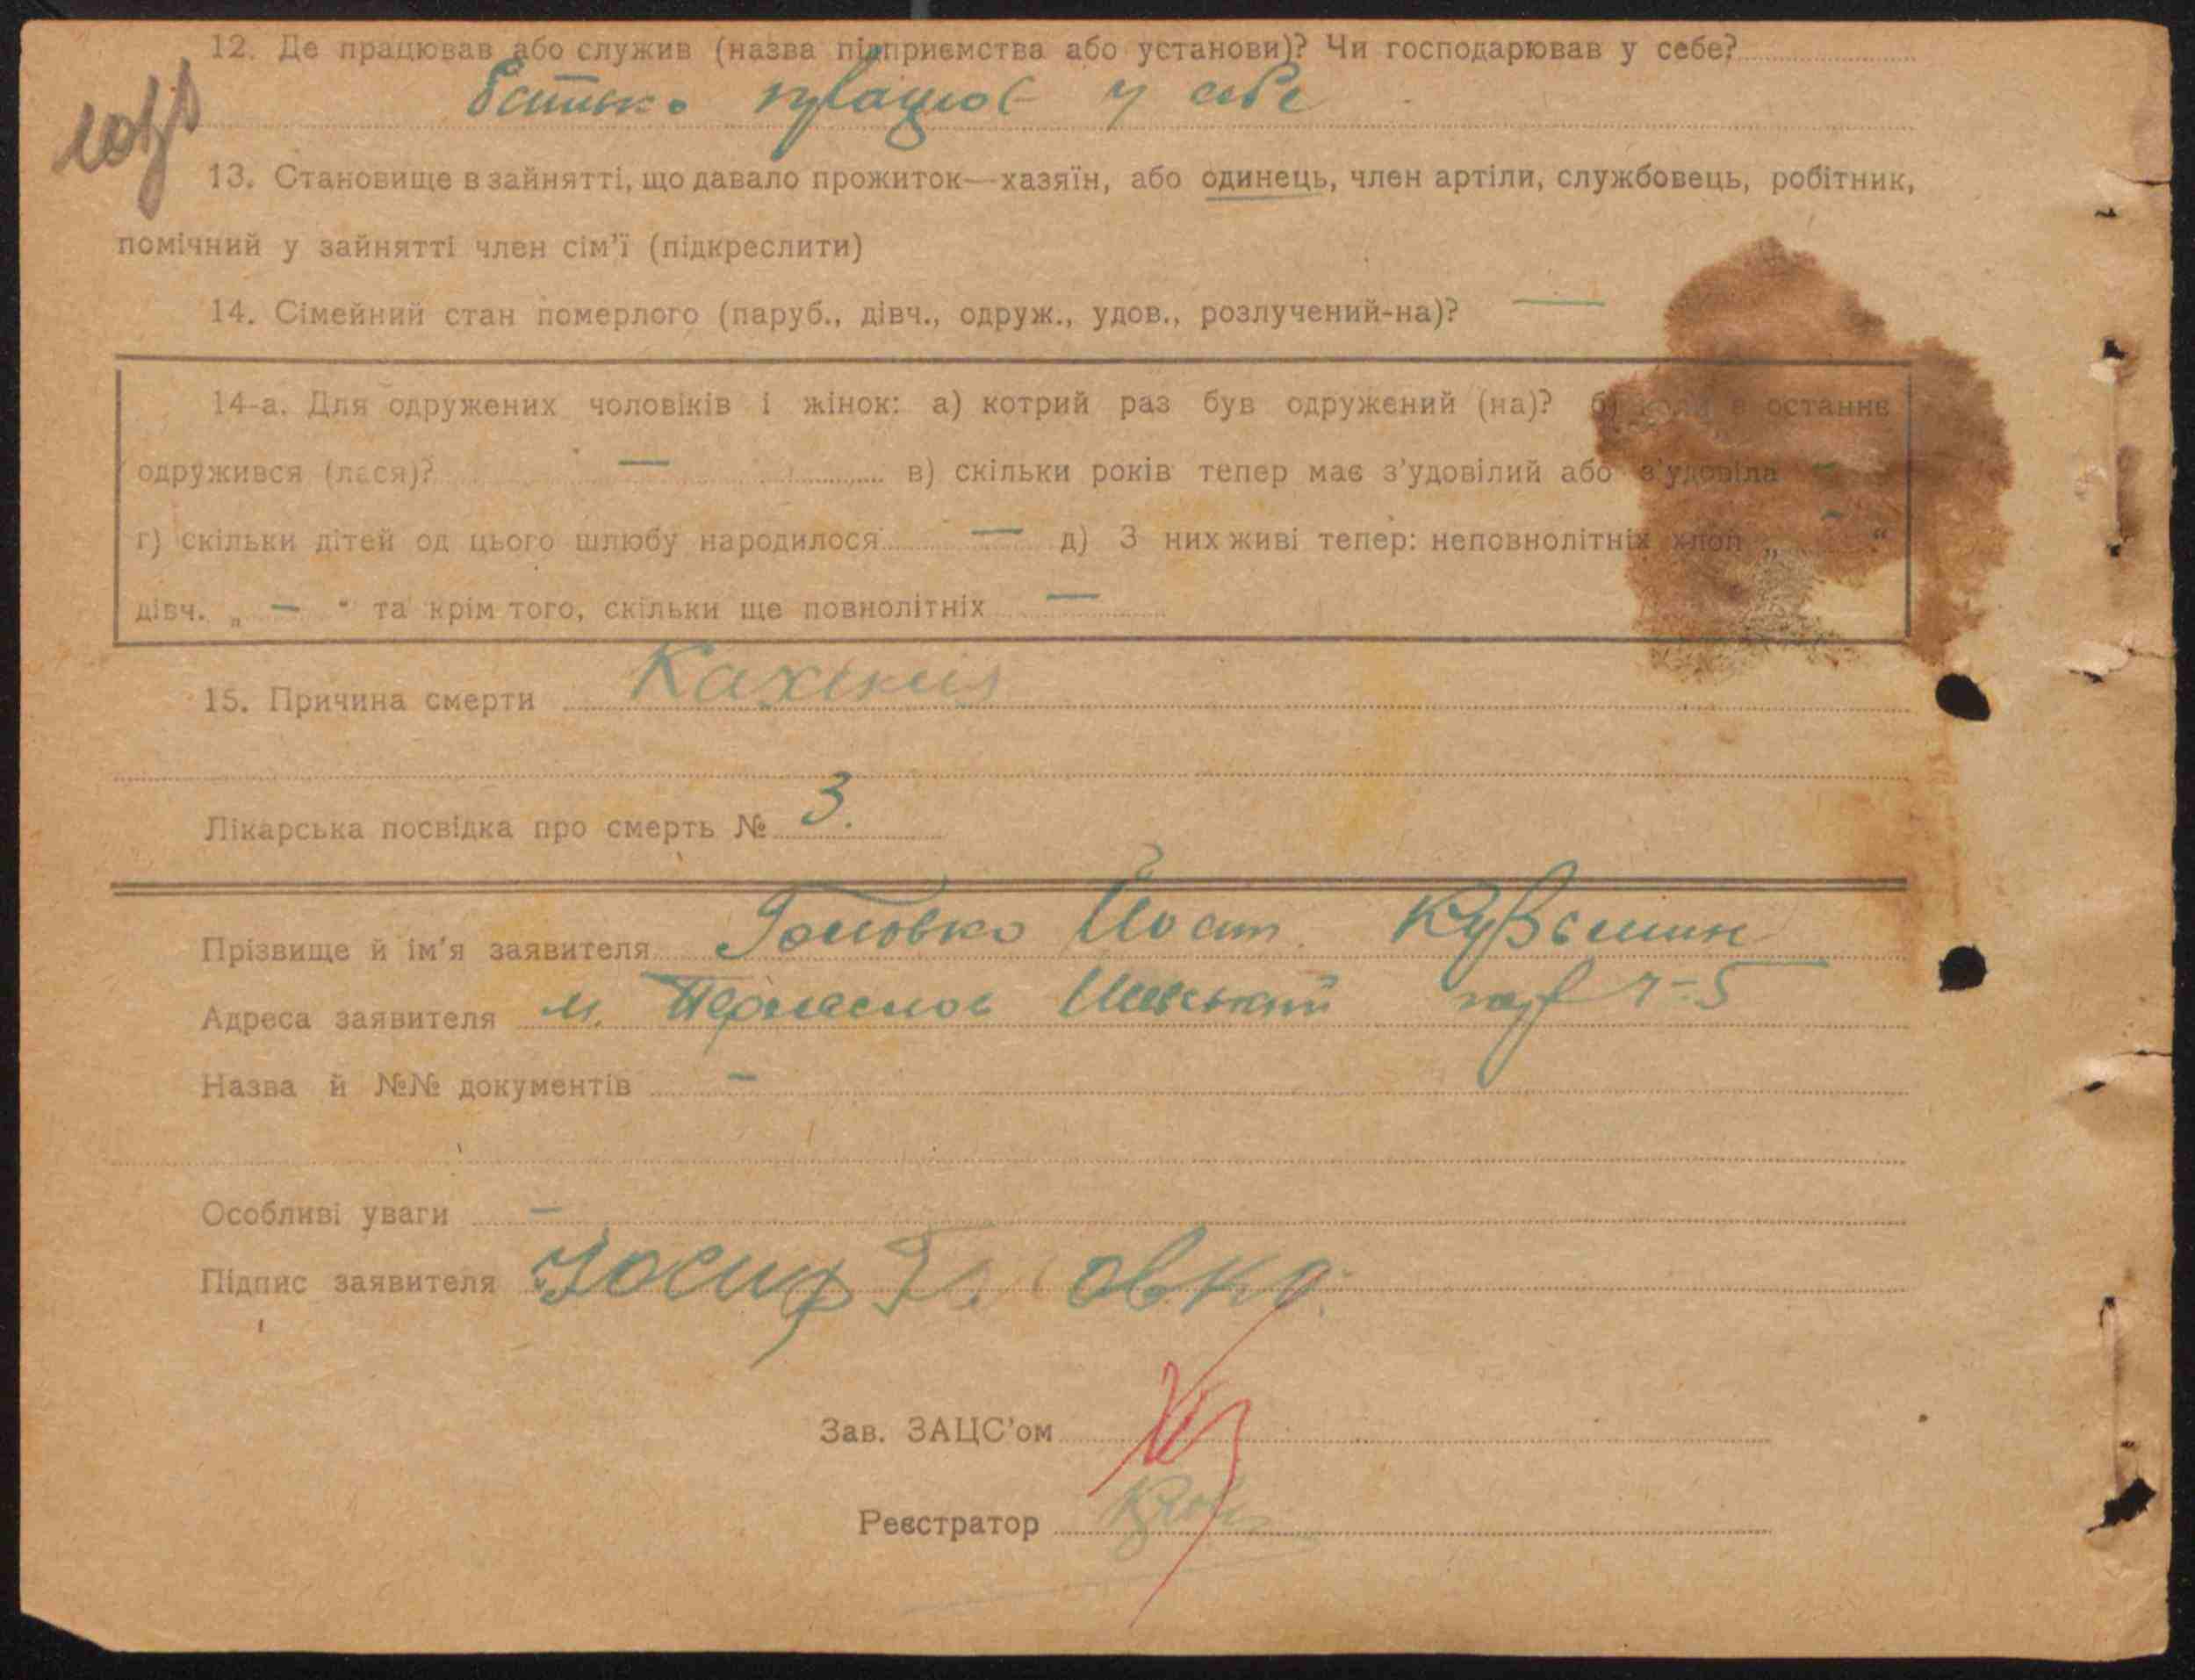 12. Де працював або служив (назва підприємства або установи)? Чи господарював у себе?
батько працює у себе
13. Становище в зайнятті, що давало прожиток—хазяїн, або одинець, член артіли, службовець, робітник,
помічний у зайнятті член сім'ї (підкреслити)
14. Сімейний стан померлого (паруб., дівч., одруж., удов., розлучений-на)? —
14-а. Для одружених чоловіків і жінок: а) котрий раз був одружений (на)? б) коли в останнє
одружився (лася)? — в) скільки років тепер має з'удовілий або з'удовіла —
г) скільки дітей од цього шлюбу народилося — д) З них живі тепер: неповнолітніх хлоп „ — “
дівч. „ — “ та крім того, скільки ще повнолітніх —
15. Причина смерти Кахексия
Лікарська посвідка про смерть № 3.
Прізвище й ім'я заявителя Головко Йосип Кузьмин
Адреса заявителя м. Переяслов
Назва й №№ документів —
Особливі уваги —
Підпис заявителя Йосиф Головко
Зав. ЗАЦС'ом
Реєстратор